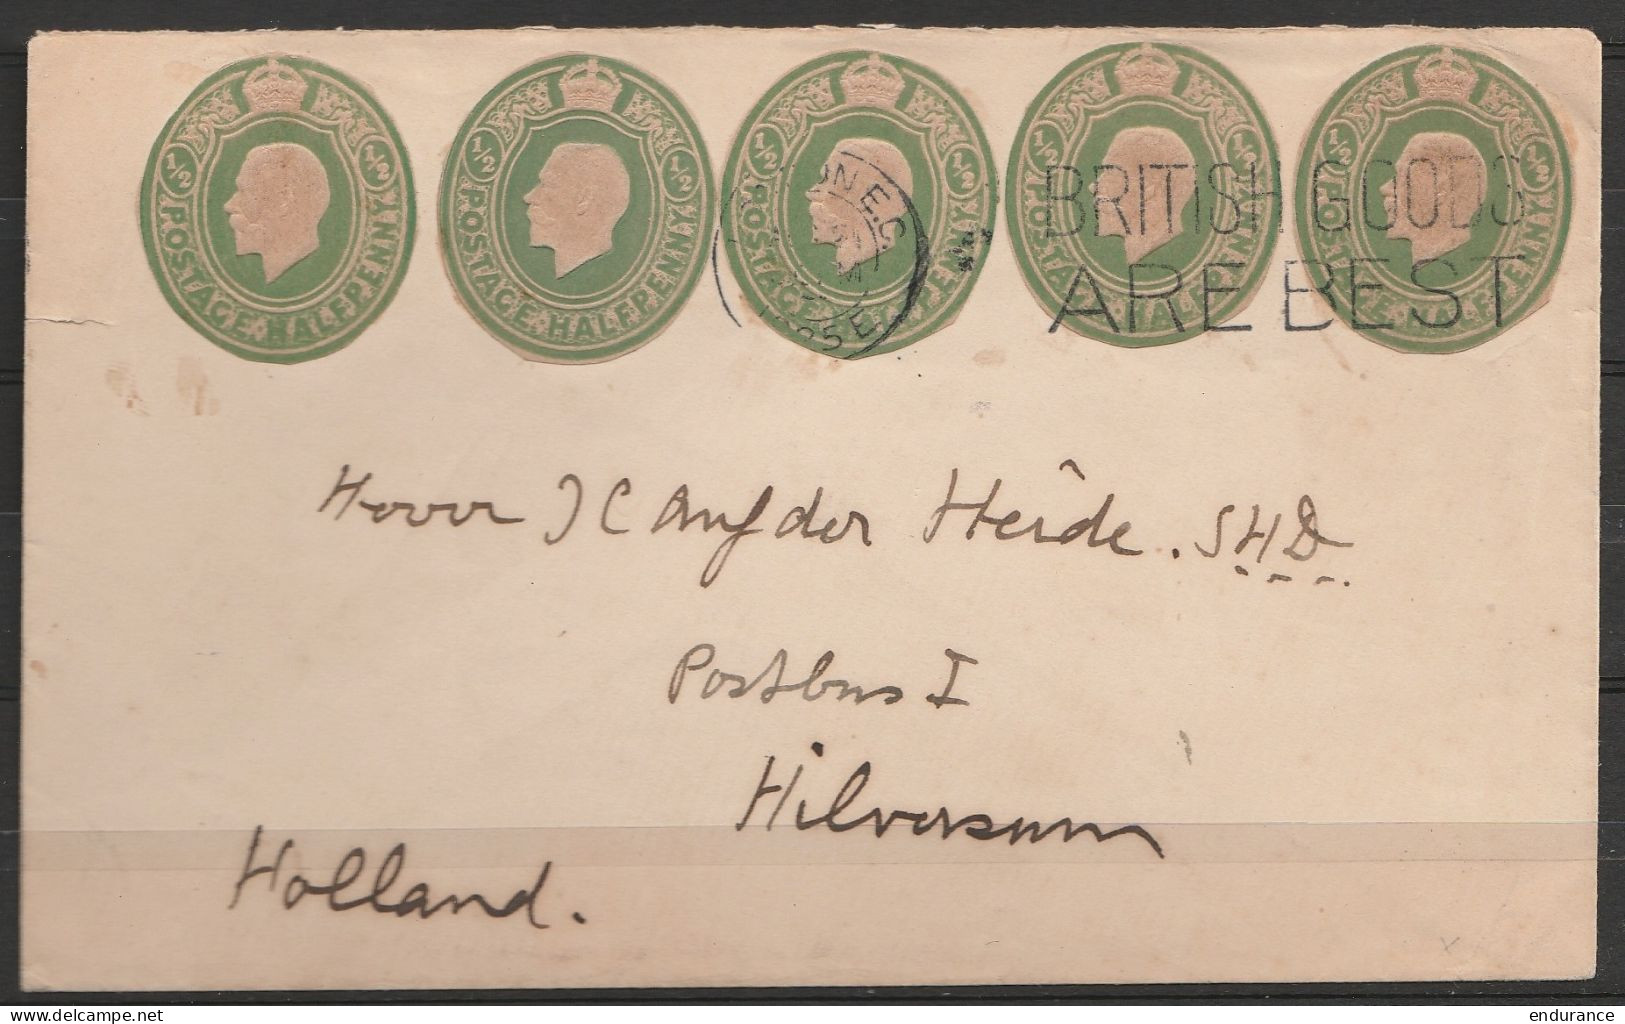 ½ POSTAGE HALFPENNY ½
½ POSTAGE HALFPENNY ½
½ POSTAGE HALFPENNY ½
½ POSTAGE HALFPENNY ½
½ POSTAGE HALFPENNY ½
E.C.
BRITISH GOODS
ARE BEST
Herrn J C Auf der Heide. SHD
Postbus I
Hilversum
Holland.
delcampe.net
endurance